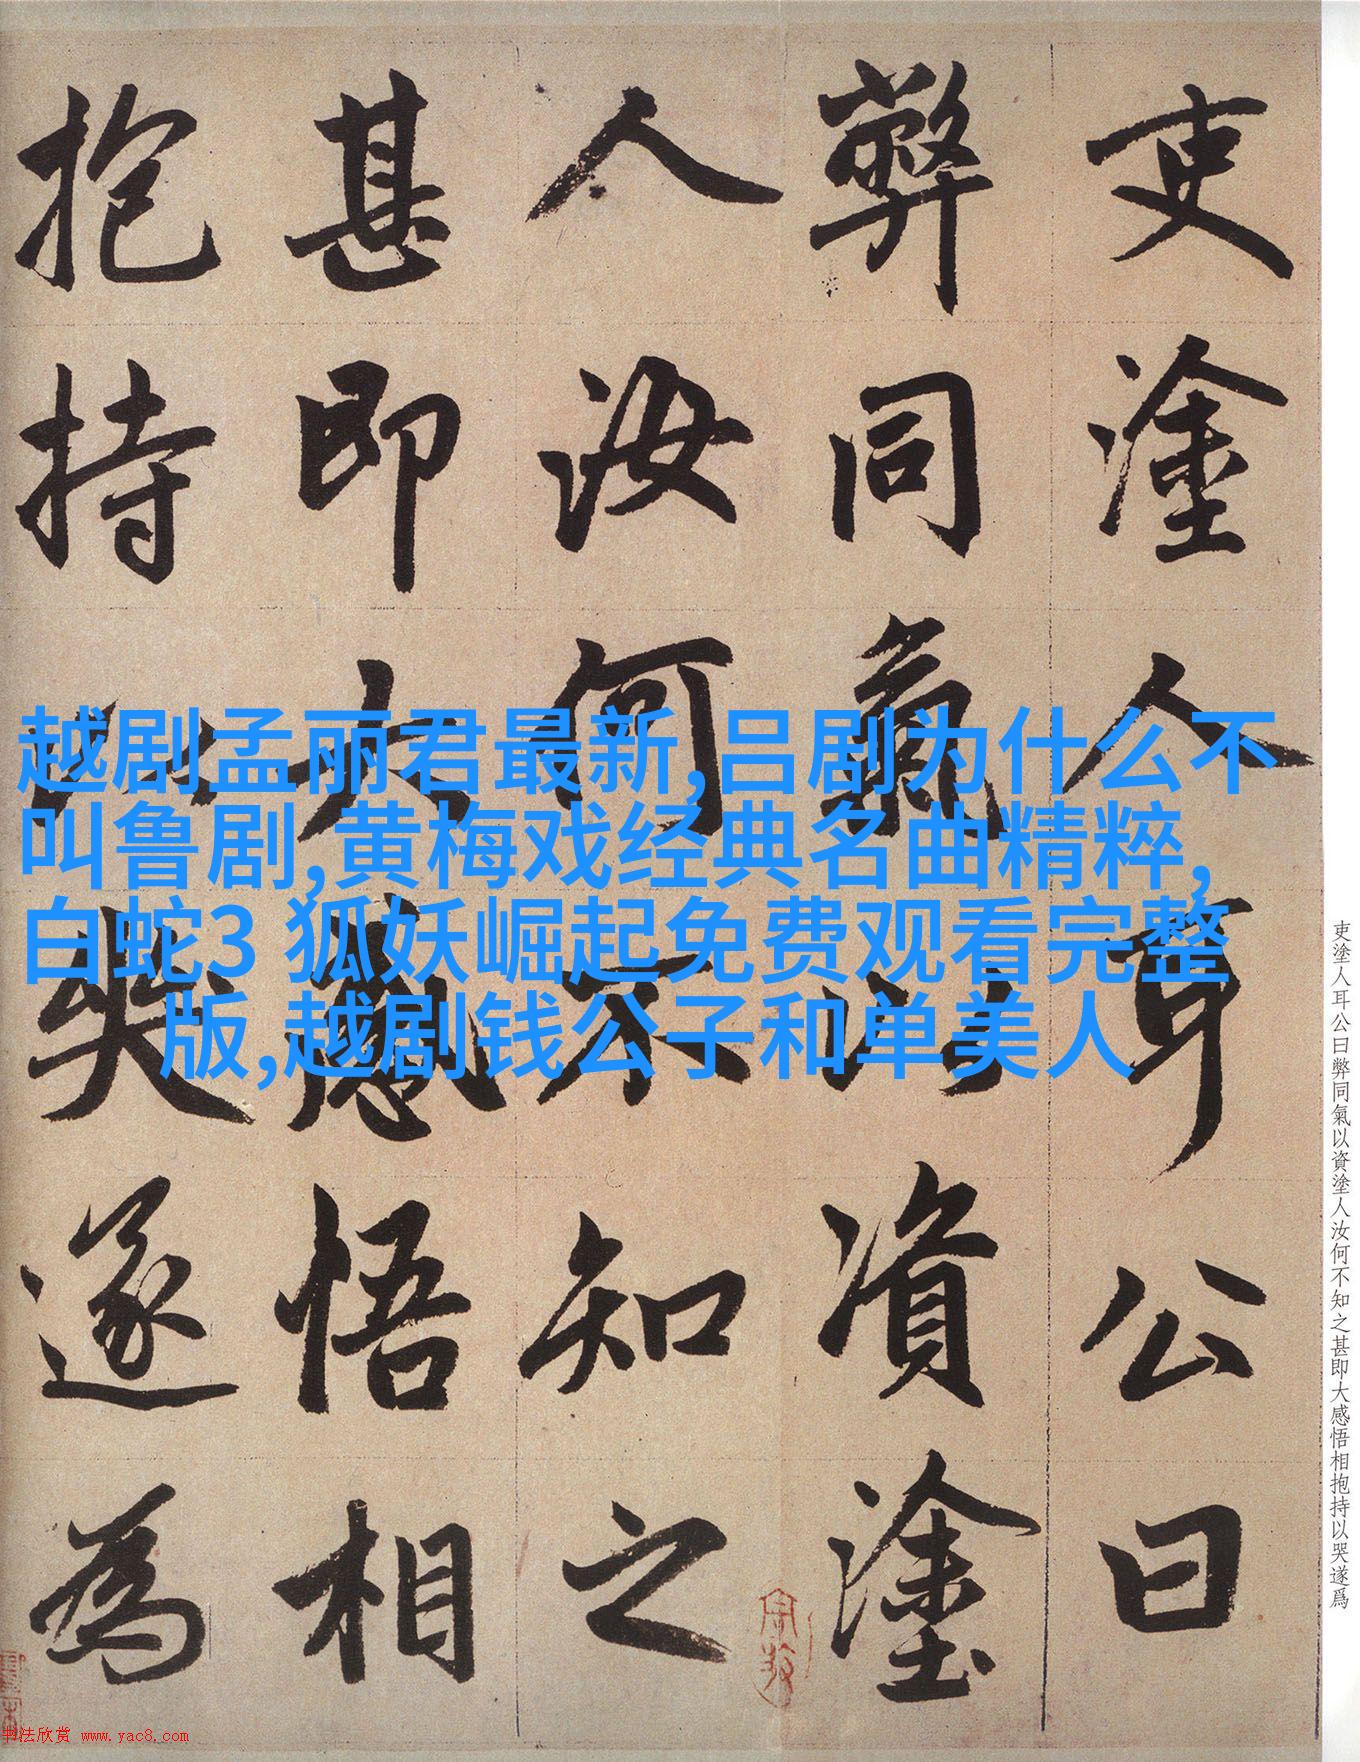 吏塗人耳公曰
弊同氣以資塗
人汝何不知之
甚即大感悟相
抱持以哭遂為
越剧孟丽君最新,吕剧为什么不
叫鲁剧,黄梅戏经典名曲精粹,
白蛇3 狐妖崛起免费观看完整
版,越剧钱公子和单美人
吏塗人耳公曰弊同氣以資塗人汝何不知之甚即大感悟相抱持以哭遂爲
书法欣赏 www.yac8.com